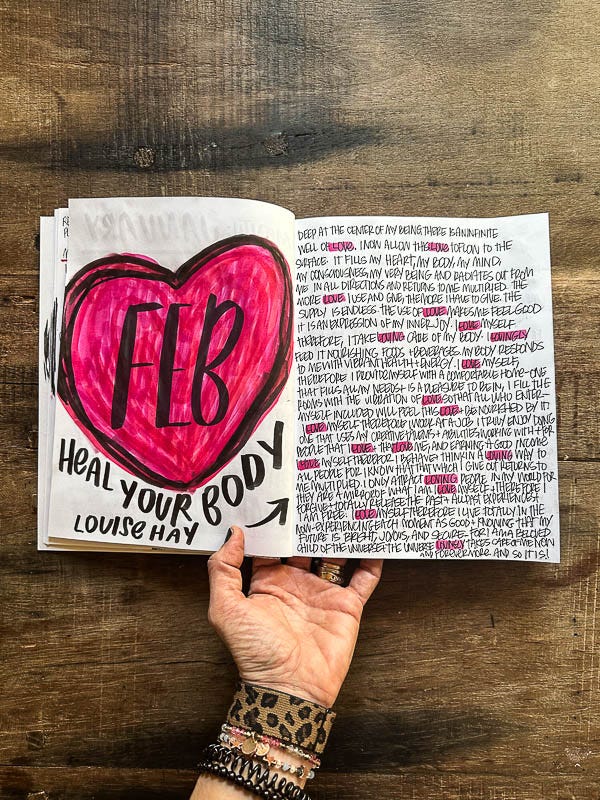 FEB
HEAL YOUR BODY
LOUISE HAY
DEEP AT THE CENTER OF MY BEING THERE IS AN INFINITE
WELL OF LOVE. I NOW ALLOW THIS LOVE TO FLOW TO THE
SURFACE. IT FILLS MY HEART, MY BODY, MY MIND,
MY CONSCIOUSNESS, MY VERY BEING AND RADIATES OUT FROM
ME IN ALL DIRECTIONS AND RETURNS TO ME MULTIPLIED. THE
MORE LOVE I USE AND GIVE, THE MORE I HAVE TO GIVE. THE
SUPPLY IS ENDLESS. THE USE OF LOVE MAKES ME FEEL GOOD
IT IS AN EXPRESSION OF MY INNER JOY. I LOVE MYSELF
THEREFORE, I TAKE LOVING CARE OF MY BODY. I LOVINGLY
FEED IT NOURISHING FOODS + BEVERAGES. MY BODY RESPONDS
TO ME WITH VIBRANT HEALTH + ENERGY. I LOVE MYSELF,
THEREFORE I PROVIDE MYSELF WITH A COMFORTABLE HOME - ONE
THAT FILLS ALL MY NEEDS + IS A PLEASURE TO BE IN, I FILL THE
ROOMS WITH THE VIBRATION OF LOVE SO THAT ALL WHO ENTER -
MYSELF INCLUDED WILL FEEL THIS LOVE + BE NOURISHED BY IT.
I LOVE MYSELF THEREFORE I WORK AT A JOB I TRULY ENJOY DOING
ONE THAT USES MY CREATIVE TALENTS + ABILITIES WORKING WITH + FOR
PEOPLE THAT I LOVE + THAT LOVE ME, AND EARNING A GOOD INCOME
LOVE MYSELF THEREFORE I BEHAVE + THINK IN A LOVING WAY TO
ALL PEOPLE FOR I KNOW THAT THAT WHICH I GIVE OUT RETURNS TO
ME MULTIPLIED. I ONLY ATTRACT LOVING PEOPLE IN MY WORLD FOR
THEY ARE A MIRROR OF WHAT I AM. I LOVE MYSELF + THEREFORE I
FORGIVE + TOTALLY RELEASE THE PAST + ALL PAST EXPERIENCES +
I AM FREE. I LOVE MYSELF THEREFORE I LIVE TOTALLY IN THE
NOW - EXPERIENCING EACH MOMENT AS GOOD + KNOWING THAT MY
FUTURE IS BRIGHT, JOYOUS, AND SECURE - FOR I AM A BELOVED
CHILD OF THE UNIVERSE + THE UNIVERSE LOVINGLY TAKES CARE OF ME NOW
AND FOREVERMORE. AND SO IT IS!